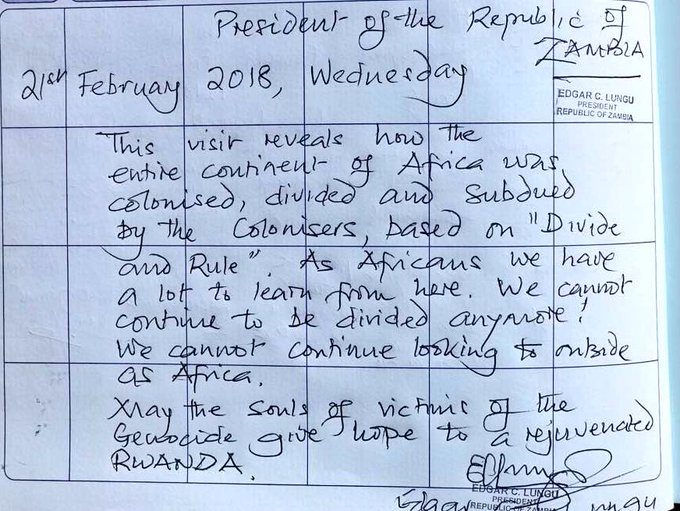 President of the Republic of
ZAMBIA
21st February 2018, Wednesday
EDGAR C. LUNGU
PRESIDENT
REPUBLIC OF ZAMBIA
This visit reveals how the
entire continent of Africa was
colonised, divided and subdued
by the Colonisers, based on "Divide
and Rule". As Africans we have
a lot to learn from here. We cannot
continue to be divided anymore!
We cannot continue looking to outside
as Africa.
May the souls of victims of the
Genocide give hope to a rejuvenated
RWANDA.
EDGAR C. LUNGU
PRESIDENT
REPUBLIC OF ZAMBIA
Edgar